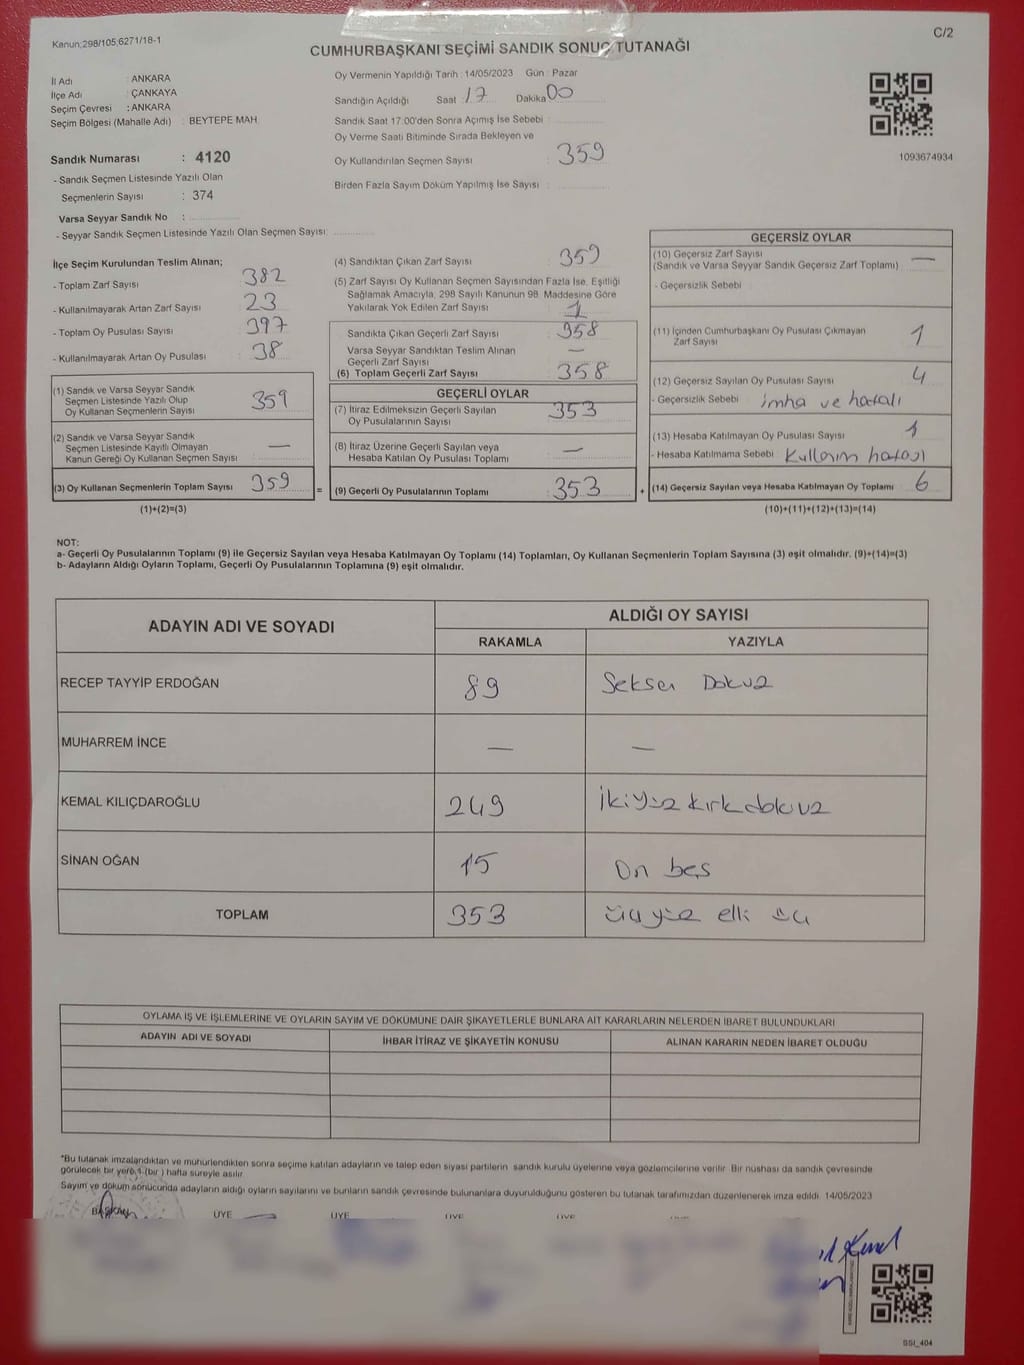 Kanun;298/105;6271/18-1
C/2
CUMHURBAŞKANI SEÇİMİ SANDIK SONUÇ TUTANAĞI
İl Adı : ANKARA
İlçe Adı : ÇANKAYA
Seçim Çevresi : ANKARA
Seçim Bölgesi (Mahalle Adı) : BEYTEPE MAH.
Sandık Numarası : 4120
- Sandık Seçmen Listesinde Yazılı Olan
Seçmenlerin Sayısı : 374
Varsa Seyyar Sandık No :
- Seyyar Sandık Seçmen Listesinde Yazılı Olan Seçmen Sayısı:
Oy Vermenin Yapıldığı Tarih :14/05/2023 Gün : Pazar
Sandığın Açıldığı Saat 17 Dakika 00
Sandık Saat 17:00'den Sonra Açımış İse Sebebi :
Oy Verme Saati Bitiminde Sırada Bekleyen ve
Oy Kullandırılan Seçmen Sayısı : 359
Birden Fazla Sayım Döküm Yapılmış İse Sayısı :
1093674934
İlçe Seçim Kurulundan Teslim Alınan;
- Toplam Zarf Sayısı : 382
- Kullanılmayarak Artan Zarf Sayısı : 23
- Toplam Oy Pusulası Sayısı : 397
- Kullanılmayarak Artan Oy Pusulası : 38
(1) Sandık ve Varsa Seyyar Sandık
Seçmen Listesinde Yazılı Olup
Oy Kullanan Seçmenlerin Sayısı : 359
(2) Sandık ve Varsa Seyyar Sandık
Seçmen Listesinde Kayıtlı Olmayan
Kanun Gereği Oy Kullanan Seçmen Sayısı : —
(3) Oy Kullanan Seçmenlerin Toplam Sayısı : 359 =
(1)+(2)=(3)
(4) Sandıktan Çıkan Zarf Sayısı : 359
(5) Zarf Sayısı Oy Kullanan Seçmen Sayısından Fazla İse, Eşitliği
Sağlamak Amacıyla, 298 Sayılı Kanunun 98. Maddesine Göre
Yakılarak Yok Edilen Zarf Sayısı : 1
Sandıkta Çıkan Geçerli Zarf Sayısı : 358
Varsa Seyyar Sandıktan Teslim Alınan
Geçerli Zarf Sayısı : —
(6) Toplam Geçerli Zarf Sayısı : 358
GEÇERLİ OYLAR
(7) İtiraz Edilmeksizin Geçerli Sayılan
Oy Pusulalarının Sayısı : 353
(8) İtiraz Üzerine Geçerli Sayılan veya
Hesaba Katılan Oy Pusulası Toplamı : —
(9) Geçerli Oy Pusulalarının Toplamı : 353 +
GEÇERSİZ OYLAR
(10) Geçersiz Zarf Sayısı
(Sandık ve Varsa Seyyar Sandık Geçersiz Zarf Toplamı) : —
- Geçersizlik Sebebi :
(11) İçinden Cumhurbaşkanı Oy Pusulası Çıkmayan
Zarf Sayısı : 1
(12) Geçersiz Sayılan Oy Pusulası Sayısı : 4
- Geçersizlik Sebebi : imha ve hatalı
(13) Hesaba Katılmayan Oy Pusulası Sayısı : 1
- Hesaba Katılmama Sebebi : Kullanım hatası
(14) Geçersiz Sayılan veya Hesaba Katılmayan Oy Toplamı : 6
(10)+(11)+(12)+(13)=(14)
NOT:
a- Geçerli Oy Pusulalarının Toplamı (9) ile Geçersiz Sayılan veya Hesaba Katılmayan Oy Toplamı (14) Toplamları, Oy Kullanan Seçmenlerin Toplam Sayısına (3) eşit olmalıdır. (9)+(14)=(3)
b- Adayların Aldığı Oyların Toplamı, Geçerli Oy Pusulalarının Toplamına (9) eşit olmalıdır.
ADAYIN ADI VE SOYADI ALDIĞI OY SAYISI
RAKAMLA YAZIYLA
RECEP TAYYİP ERDOĞAN 89 Seksen Dokuz
MUHARREM İNCE — —
KEMAL KILIÇDAROĞLU 249 İkiyüz kırk dokuz
SİNAN OĞAN 15 On beş
TOPLAM 353 üçyüz elli üç
OYLAMA İŞ VE İŞLEMLERİNE VE OYLARIN SAYIM VE DÖKÜMÜNE DAİR ŞİKAYETLERLE BUNLARA AİT KARARLARIN NELERDEN İBARET BULUNDUKLARI
ADAYIN ADI VE SOYADI İHBAR İTİRAZ VE ŞİKAYETİN KONUSU ALINAN KARARIN NEDEN İBARET OLDUĞU
*Bu tutanak imzalandıktan ve mühürlendikten sonra seçime katılan adayların ve talep eden siyasi partilerin sandık kurulu üyelerine veya gözlemcilerine verilir. Bir nüshası da sandık çevresinde
görülecek bir yere 1 (bir ) hafta süreyle asılır.
Sayım ve döküm sonucunda adayların aldığı oyların sayılarını ve bunların sandık çevresinde bulunanlara duyurulduğunu gösteren bu tutanak tarafımızdan düzenlenerek imza edildi. 14/05/2023
BAŞKAN ÜYE ÜYE ÜYE ÜYE ÜYE
SSI_404